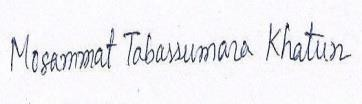 Mosammat Tabassumara Khatun